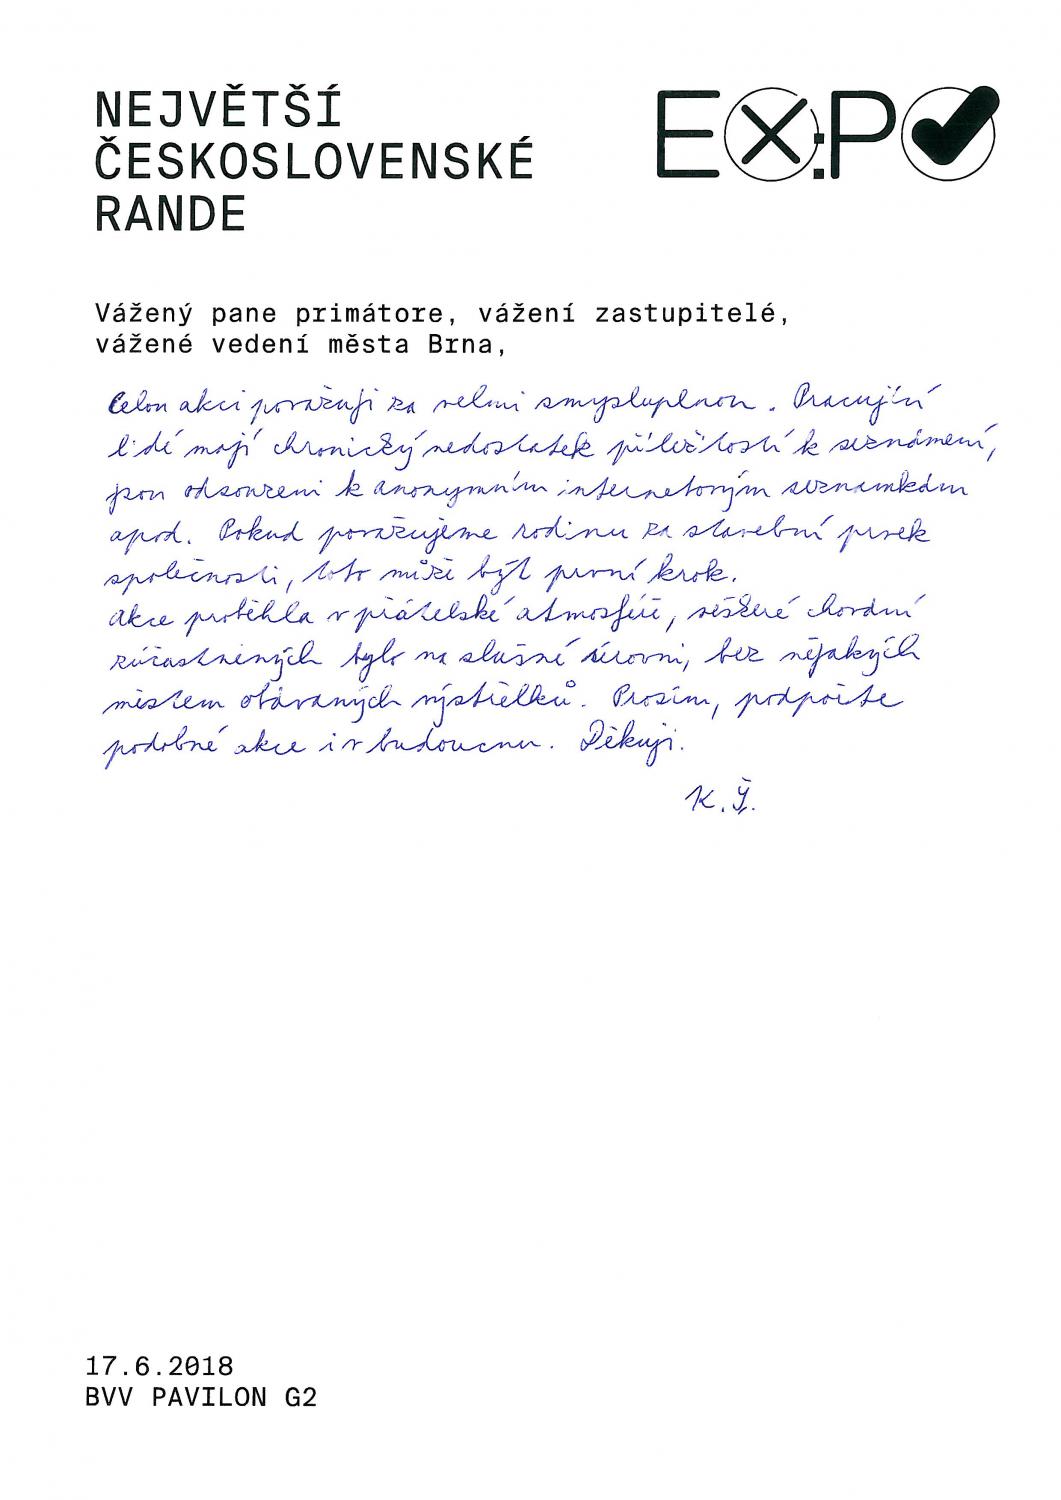 NEJVĚTŠÍ
ČESKOSLOVENSKÉ
RANDE
EX:PO
Vážený pane primátore, vážení zastupitelé,
vážené vedení města Brna,
Celou akci považuji za velmi smysluplnou. Pracující
lidé mají chronický nedostatek příležitostí k seznámení,
jsou odsouzeni k anonymním internetovým seznamkám
apod. Pokud považujeme rodinu za stavební prvek
společnosti, toto může být první krok.
Akce proběhla v přátelské atmosféře, veškeré chování
zúčastněných bylo na slušné úrovni, bez nějakých
městem obávaných výstřelků. Prosím, podpořte
podobné akce i v budoucnu. Děkuji.
K. Š.
17.6.2018
BVV PAVILON G2